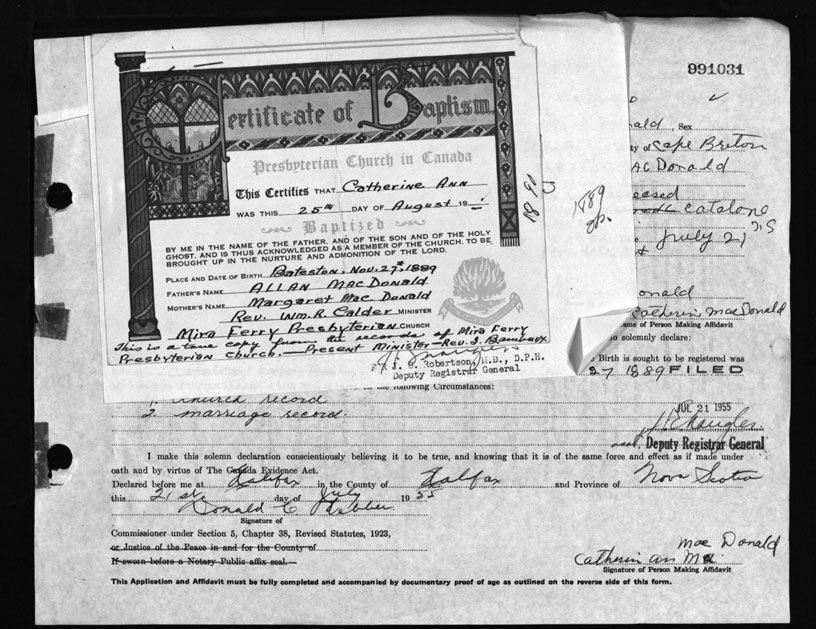 991031
Certificate of Baptism
Presbyterian Church in Canada
This Certifies THAT Catherine Ann
WAS THIS 25th DAY OF August 19
Baptized
BY ME IN THE NAME OF THE FATHER, AND OF THE SON AND OF THE HOLY
GHOST, AND IS THUS ACKNOWLEDGED AS A MEMBER OF THE CHURCH, TO BE
BROUGHT UP IN THE NURTURE AND ADMONITION OF THE LORD.
PLACE AND DATE OF BIRTH Bateston, Nov. 27th, 1889
FATHER'S NAME ALLAN MACDonald
MOTHER'S NAME Margaret MacDonald
Rev. Wm. R. Calder MINISTER
Mira Ferry Presbyterian CHURCH
This is a true copy from the records of Mira Ferry
Presbyterian Church. — Present Minister - Rev. J.
J. S. Robertson, M.D., D.P.H.
Deputy Registrar General
1889
ald, Sex
ty of Cape Breton
Mac Donald
eased
Catalone
July 21
onald
Catherin MacDonald
ame of Person Making Affidavit
o solemnly declare:
Birth is sought to be registered was
27 1889 FILED
the following Circumstances:
1. record
2. marriage record.
JUL 21 1955
Deputy Registrar General
I make this solemn declaration conscientiously believing it to be true, and knowing that it is of the same force and effect as if made under
oath and by virtue of The Canada Evidence Act.
Declared before me at Halifax in the County of Halifax and Province of Nova Scotia
this 21st day of July 1955
Donald C
Signature of
Commissioner under Section 5, Chapter 38, Revised Statutes, 1923,
or Justice of the Peace in and for the County of
If sworn before a Notary Public affix seal.
Mac Donald
Catherin ann Ma
Signature of Person Making Affidavit
This Application and Affidavit must be fully completed and accompanied by documentary proof of age as outlined on the reverse side of this form.